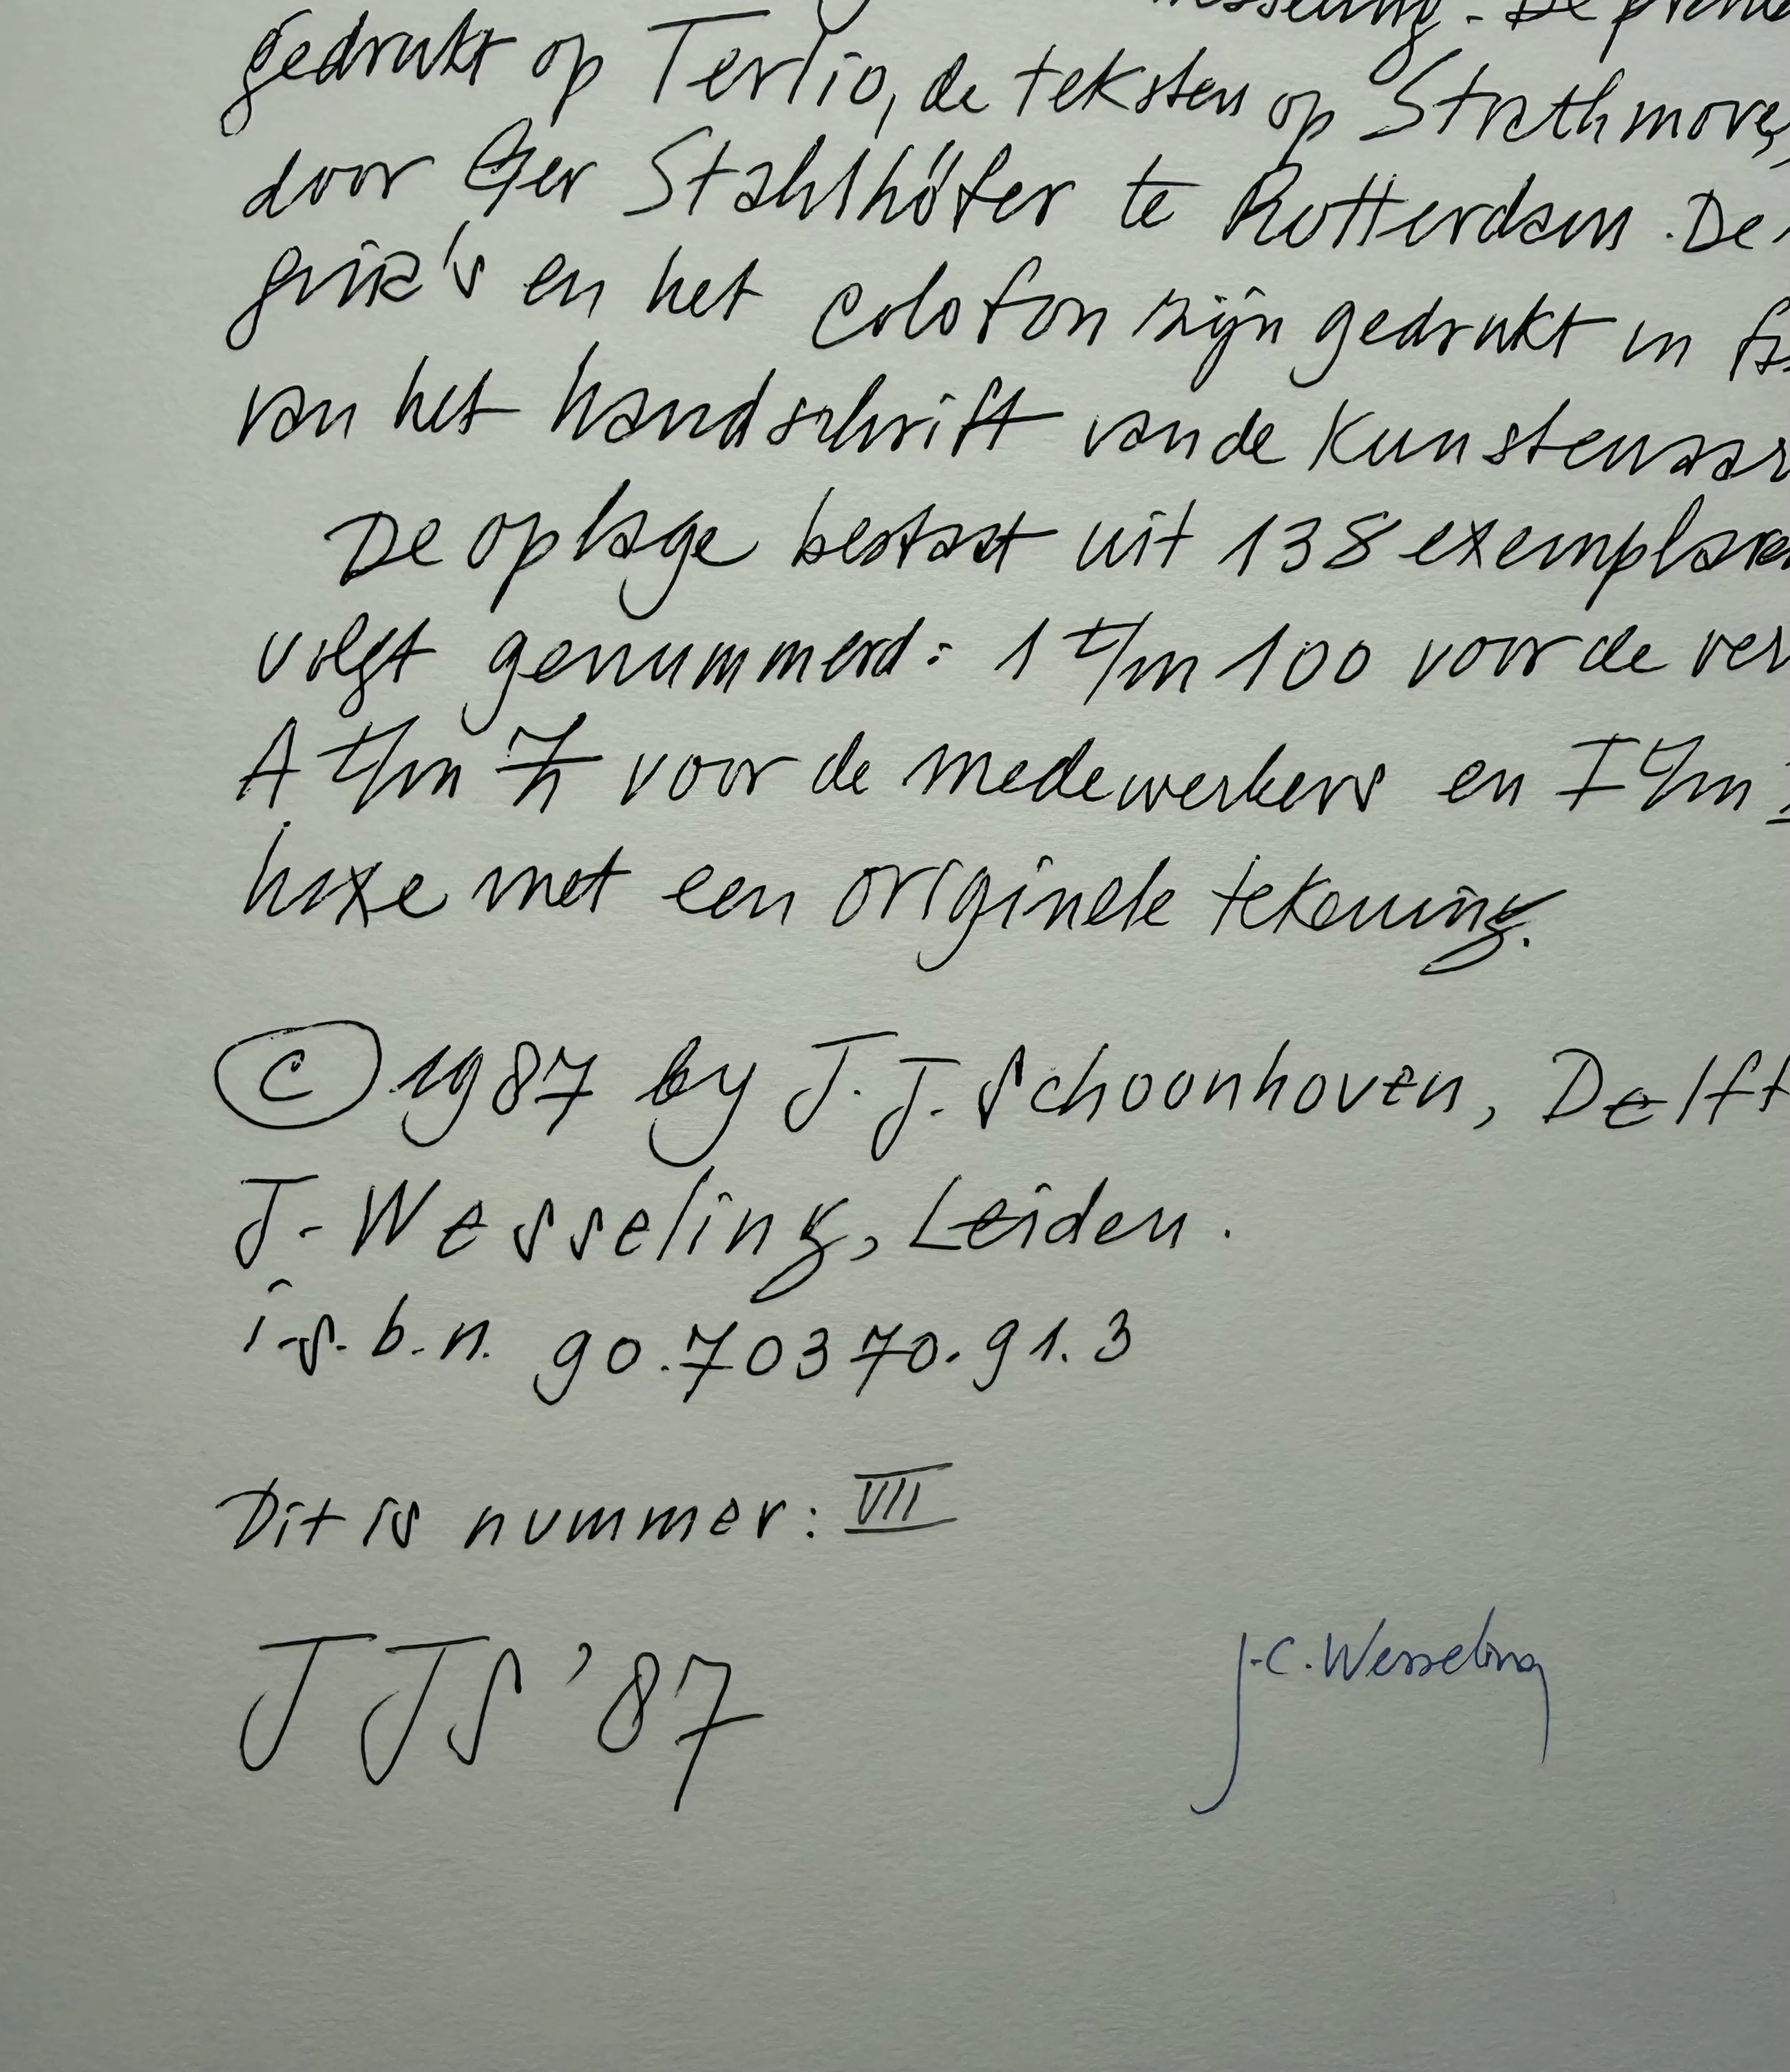 gedrukt op Tertio, de teksten op Strathmore,
door Ger Stahlhöfer te Rotterdam. De
en het colofon zijn gedrukt in
van het handschrift van de Kunstenaar
De oplage bestaat uit 138 exemplare
volgt genummerd: 1 t/m 100 voor de ver
A t/m Z voor de medewerkers en I t/m
luxe met een originele tekening.
© 1987 by J. J. Schoonhoven, Delft
J. Wesseling, Leiden.
i.s.b.n. 90.70370.91.3
Dit is nummer: VII
JJS '87
J.C. Wesseling